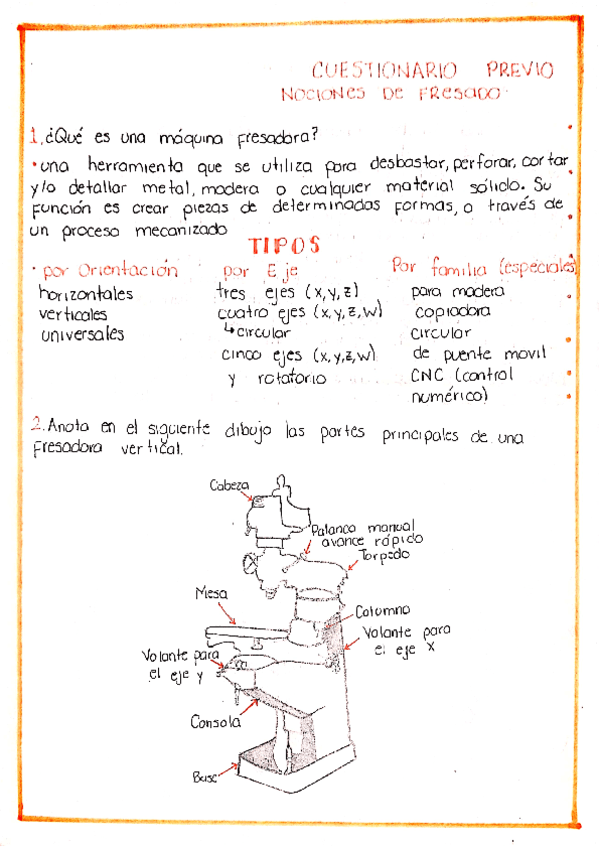 CUESTIONARIO PREVIO
NOCIONES DE FRESADO
1. ¿Qué es una máquina fresadora?
• una herramienta que se utiliza para desbastar, perforar, cortar
y/o detallar metal, madera o cualquier material sólido. Su
función es crear piezas de determinadas formas, a través de
un proceso mecanizado
TIPOS
• por Orientación
horizontales
verticales
universales
por Eje
tres ejes (x,y,z)
cuatro ejes (x,y,z,w)
↳circular
cinco ejes (x,y,z,w)
y rotatorio
Por familia (especiales)
para madera
copiadora
circular
de puente movil
CNC (control
numérico)
2. Anota en el siguiente dibujo las partes principales de una
fresadora vertical.
Cabeza
Palanca manual
avance rápido
Torpedo
Mesa
Columna
Volante para
el eje x
Volante para
el eje y
Consola
Base